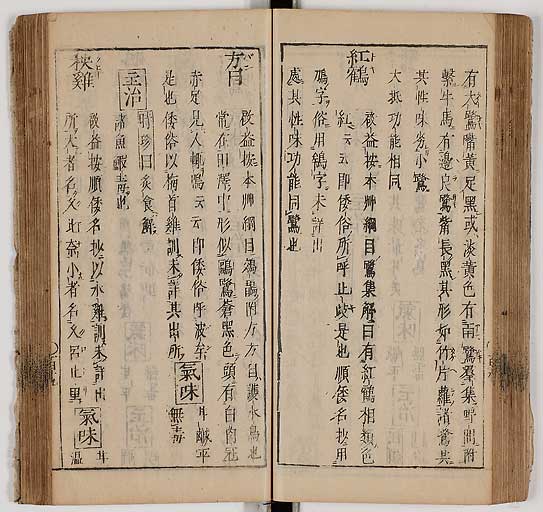 有大鷺觜黄足黒或淡黄色有雨鷺羣集野間附
繋牛馬有邊良鷺觜長黒其形如竹片蘿諸鷺其
其性味労小鷺
大抵功能相同
紅鶴
啟益按本艸綱目鷺集解曰有紅鶴相類色
紅云云即倭俗所呼止岐是也順倭名抄用
鴇字俗用鶴字未詳出
處其性味功能同鷺也
方目
啟益按本艸綱目鶂鷁附方方目護水鳥也
常在田澤中形似鷗鷺蒼黒色頭有白肉冠
赤足見人輙鳴云云即倭俗所呼波奈
是也倭俗以梅首雞訓未詳其出所
氣味
甘鹹平
無毒
主治
時珍曰炙食解
諸魚鰕毒也
秧雞
啟益按順倭名抄以水雞訓未詳出
所大者名久比奈小者名久呂止里
氣味
甘
温